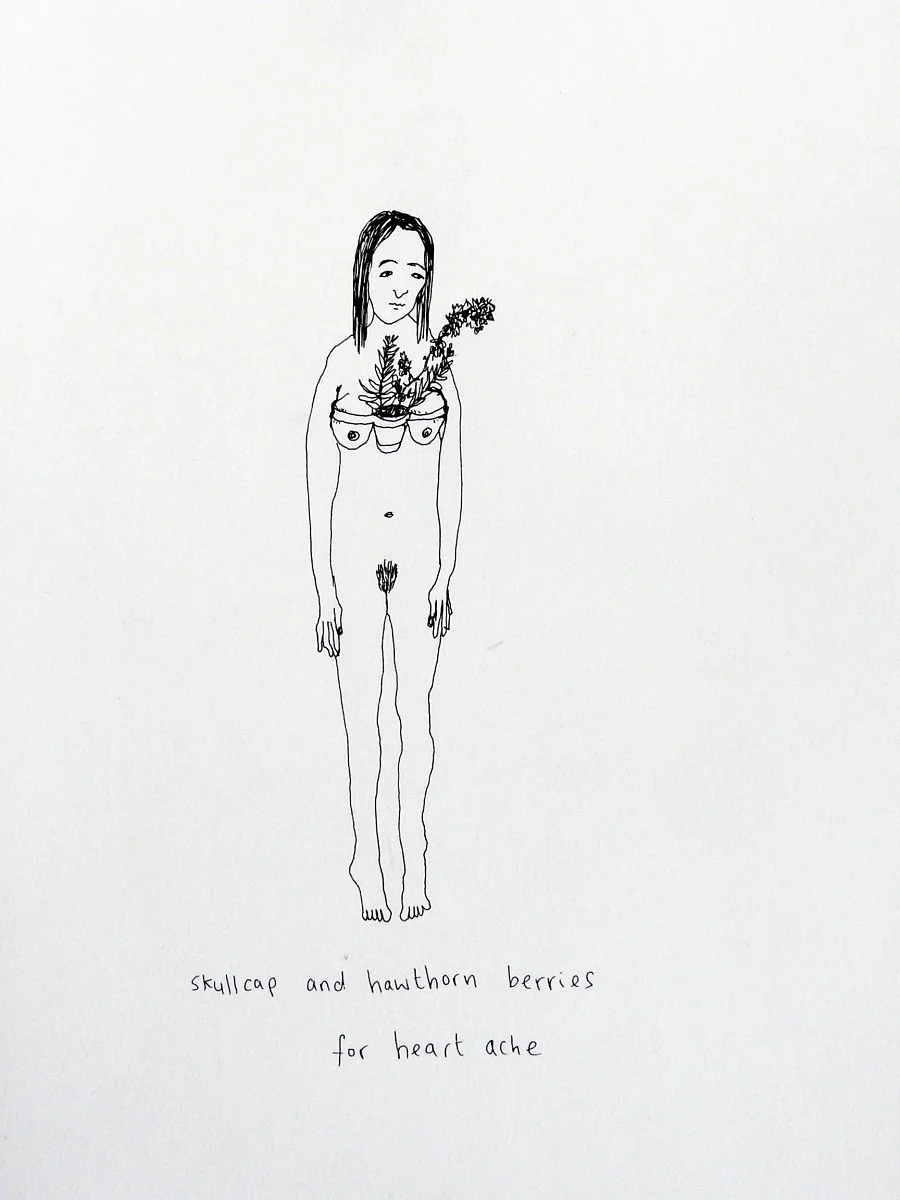 skullcap and hawthorn berries
for heart ache